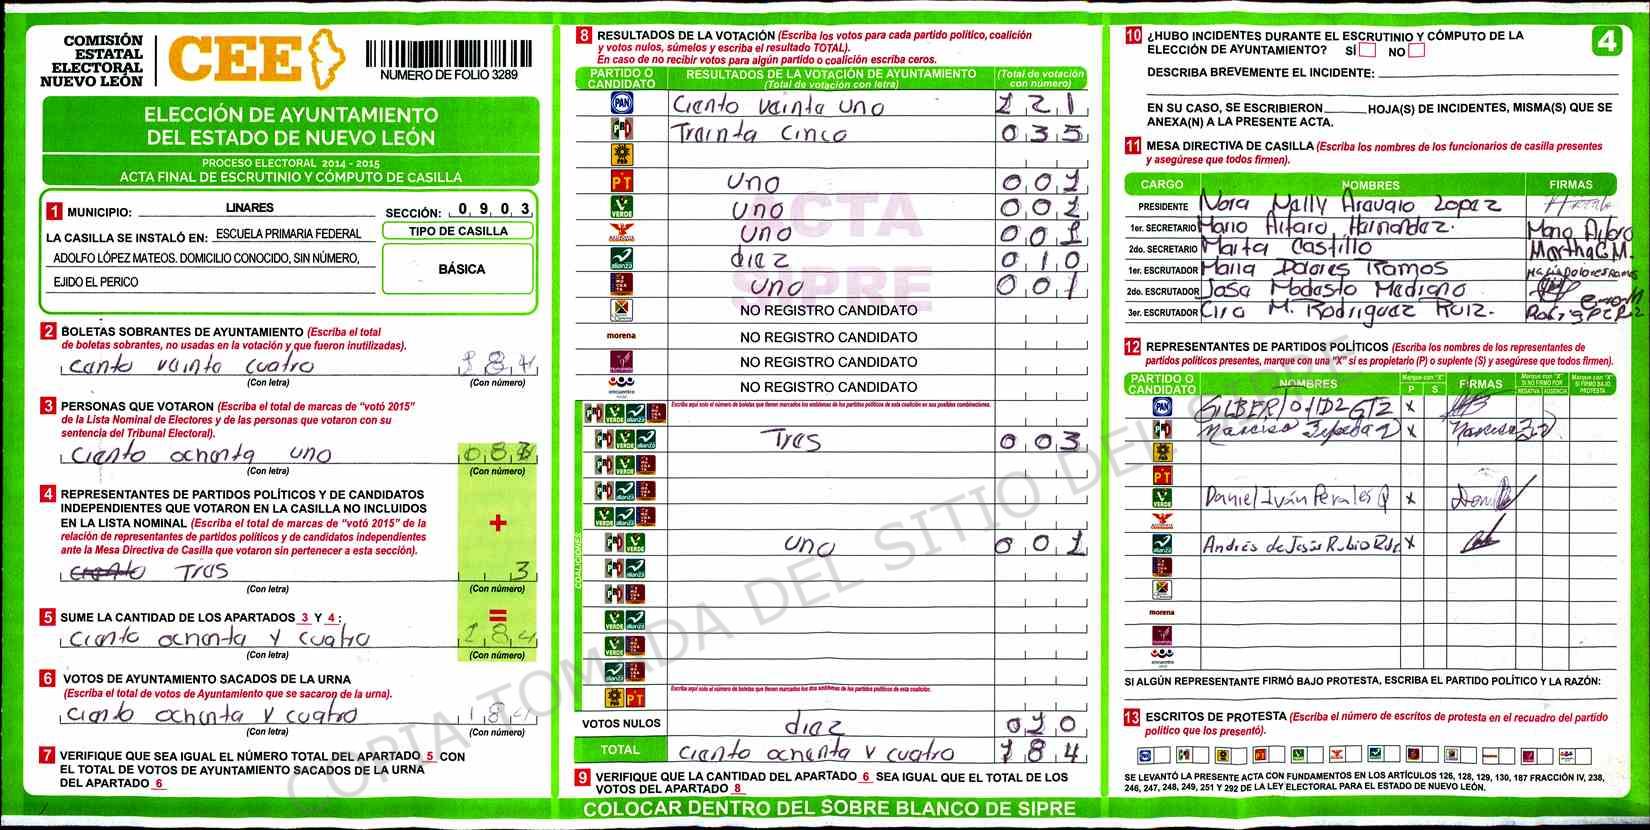 COMISIÓN
ESTATAL
ELECTORAL
NUEVO LEÓN
CEE
NUMERO DE FOLIO 3289
ELECCIÓN DE AYUNTAMIENTO
DEL ESTADO DE NUEVO LEÓN
PROCESO ELECTORAL 2014 - 2015
ACTA FINAL DE ESCRUTINIO Y CÓMPUTO DE CASILLA
1 MUNICIPIO: LINARES SECCIÓN: 0 9 0 3
LA CASILLA SE INSTALÓ EN: ESCUELA PRIMARIA FEDERAL
ADOLFO LÓPEZ MATEOS. DOMICILIO CONOCIDO, SIN NÚMERO,
EJIDO EL PERICO
TIPO DE CASILLA
BÁSICA
2 BOLETAS SOBRANTES DE AYUNTAMIENTO (Escriba el total
de boletas sobrantes, no usadas en la votación y que fueron inutilizadas).
cianto vainta cuatro
(Con letra) (Con número)
3 PERSONAS QUE VOTARON (Escriba el total de marcas de “votó 2015”
de la Lista Nominal de Electores y de las personas que votaron con su
sentencia del Tribunal Electoral).
cianto ochanta uno
(Con letra) (Con número)
4 REPRESENTANTES DE PARTIDOS POLÍTICOS Y DE CANDIDATOS
INDEPENDIENTES QUE VOTARON EN LA CASILLA NO INCLUIDOS
EN LA LISTA NOMINAL (Escriba el total de marcas de “votó 2015” de la
relación de representantes de partidos políticos y de candidatos independientes
ante la Mesa Directiva de Casilla que votaron sin pertenecer a esta sección).
+
Tras 3
(Con letra) (Con número)
=
5 SUME LA CANTIDAD DE LOS APARTADOS 3 Y 4 :
cianto ochanta y cuatro 1 8 4
(Con letra) (Con número)
6 VOTOS DE AYUNTAMIENTO SACADOS DE LA URNA
(Escriba el total de votos de Ayuntamiento que se sacaron de la urna).
cianto ochanta y cuatro 1 8 4
(Con letra) (Con número)
7 VERIFIQUE QUE SEA IGUAL EL NÚMERO TOTAL DEL APARTADO 5 CON
EL TOTAL DE VOTOS DE AYUNTAMIENTO SACADOS DE LA URNA
DEL APARTADO 6
8 RESULTADOS DE LA VOTACIÓN (Escriba los votos para cada partido político, coalición
y votos nulos, súmelos y escriba el resultado TOTAL).
En caso de no recibir votos para algún partido o coalición escriba ceros.
PARTIDO O CANDIDATO RESULTADOS DE LA VOTACIÓN DE AYUNTAMIENTO (Total de votación con letra) (Total de votación con número)
PAN cianto vainta uno 1 2 1
PRI Trainta cinco 0 3 5
PRD
PT uno 0 0 1
VERDE uno 0 0 1
uno 0 0 1
alianza diaz 0 1 0
uno 0 0 1
NO REGISTRO CANDIDATO
morena NO REGISTRO CANDIDATO
NO REGISTRO CANDIDATO
encuentro NO REGISTRO CANDIDATO
ACTA
SIPRE
COALICIONES
Escriba aquí solo el número de boletas que tienen marcados los emblemas de los partidos políticos de esta coalición en sus posibles combinaciones.
Tras 0 0 3
uno 0 0 1
Escriba aquí solo el número de boletas que tienen marcados los dos emblemas de los partidos políticos de esta coalición.
VOTOS NULOS diaz 0 1 0
TOTAL cianto ochanta y cuatro 1 8 4
9 VERIFIQUE QUE LA CANTIDAD DEL APARTADO 6 SEA IGUAL QUE EL TOTAL DE LOS
VOTOS DEL APARTADO 8
COLOCAR DENTRO DEL SOBRE BLANCO DE SIPRE
10 ¿HUBO INCIDENTES DURANTE EL ESCRUTINIO Y CÓMPUTO DE LA
ELECCIÓN DE AYUNTAMIENTO? SÍ NO
4
DESCRIBA BREVEMENTE EL INCIDENTE:
EN SU CASO, SE ESCRIBIERON HOJA(S) DE INCIDENTES, MISMA(S) QUE SE
ANEXA(N) A LA PRESENTE ACTA.
11 MESA DIRECTIVA DE CASILLA (Escriba los nombres de los funcionarios de casilla presentes
y asegúrese que todos firmen).
CARGO NOMBRES FIRMAS
PRESIDENTE Nora Nally Araujo Lopaz
1er. SECRETARIO Mario Alfaro Harnandaz.
2do. SECRETARIO Marta Castillo Martha C.M.
1er. ESCRUTADOR Maria Dolores Ramos Maria Dolores Ramos
2do. ESCRUTADOR Josa Modasto Madrano
3er. ESCRUTADOR Ciro M. Rodriguaz Ruiz.
12 REPRESENTANTES DE PARTIDOS POLÍTICOS (Escriba los nombres de los representantes de
partidos políticos presentes, marque con una “X” si es propietario (P) o suplente (S) y asegúrese que todos firmen).
PARTIDO O CANDIDATO NOMBRES Marque con “X” P S FIRMAS Marque con “X” SI NO FIRMÓ POR NEGATIVA AUSENCIA Marque con “X” SI FIRMÓ BAJO PROTESTA
PAN GILBERTO X
PRI Narciso X Narciso
PRD
PT
VERDE Daniel Iván Perales X
alianza Andrés de Jesús Rubio X
morena
encuentro
SI ALGÚN REPRESENTANTE FIRMÓ BAJO PROTESTA, ESCRIBA EL PARTIDO POLÍTICO Y LA RAZÓN:
13 ESCRITOS DE PROTESTA (Escriba el número de escritos de protesta en el recuadro del partido
político que los presentó).
SE LEVANTÓ LA PRESENTE ACTA CON FUNDAMENTOS EN LOS ARTÍCULOS 126, 128, 129, 130, 187 FRACCIÓN IV, 238,
246, 247, 248, 249, 251 Y 292 DE LA LEY ELECTORAL PARA EL ESTADO DE NUEVO LEÓN.
COPIA TOMADA DEL SITIO DEL SIPRE